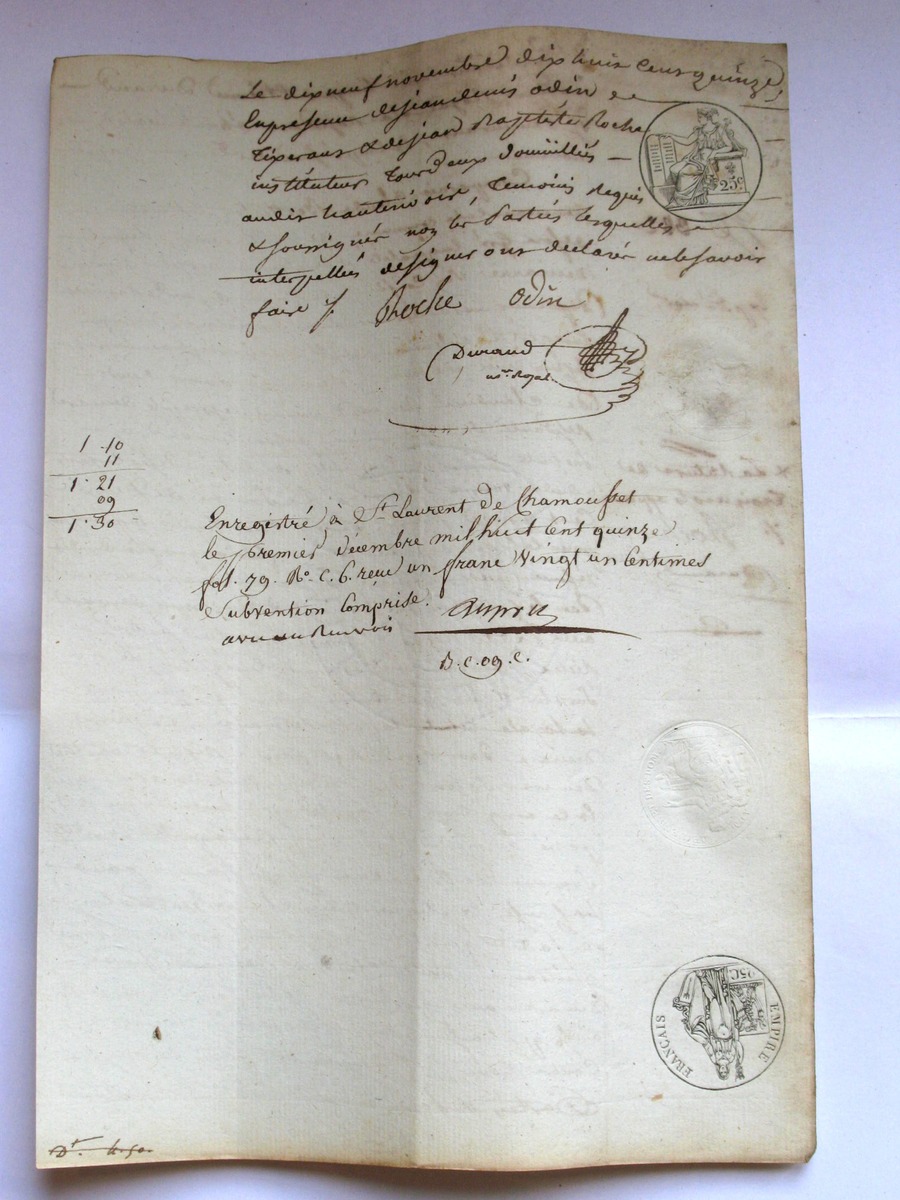 Le dix neuf novembre dix huit cent quinze,
En presence de jean denis odin
Tixerant & de jean Baptiste Roche
instituteur tous deux domiciliés
audit hauterivoir, temoins requis
& soussignés non les Parties lesquelles
interpellés de signer ont declaré ne le savoir
faire /.
Roche odin
Durand
no.re Royal
25c
1.10
11
1.21
09
1.30
Enregistré à St. Laurent de Chamousset
le premier décembre mil huit cent quinze
fol. 79. Ro. C. 6. reçu un franc Vingt un Centimes
Subvention Comprise.
avec un Renvois
D. C. 09. C.
EMPIRE
FRANÇAIS
25C
Dt. 4.50.